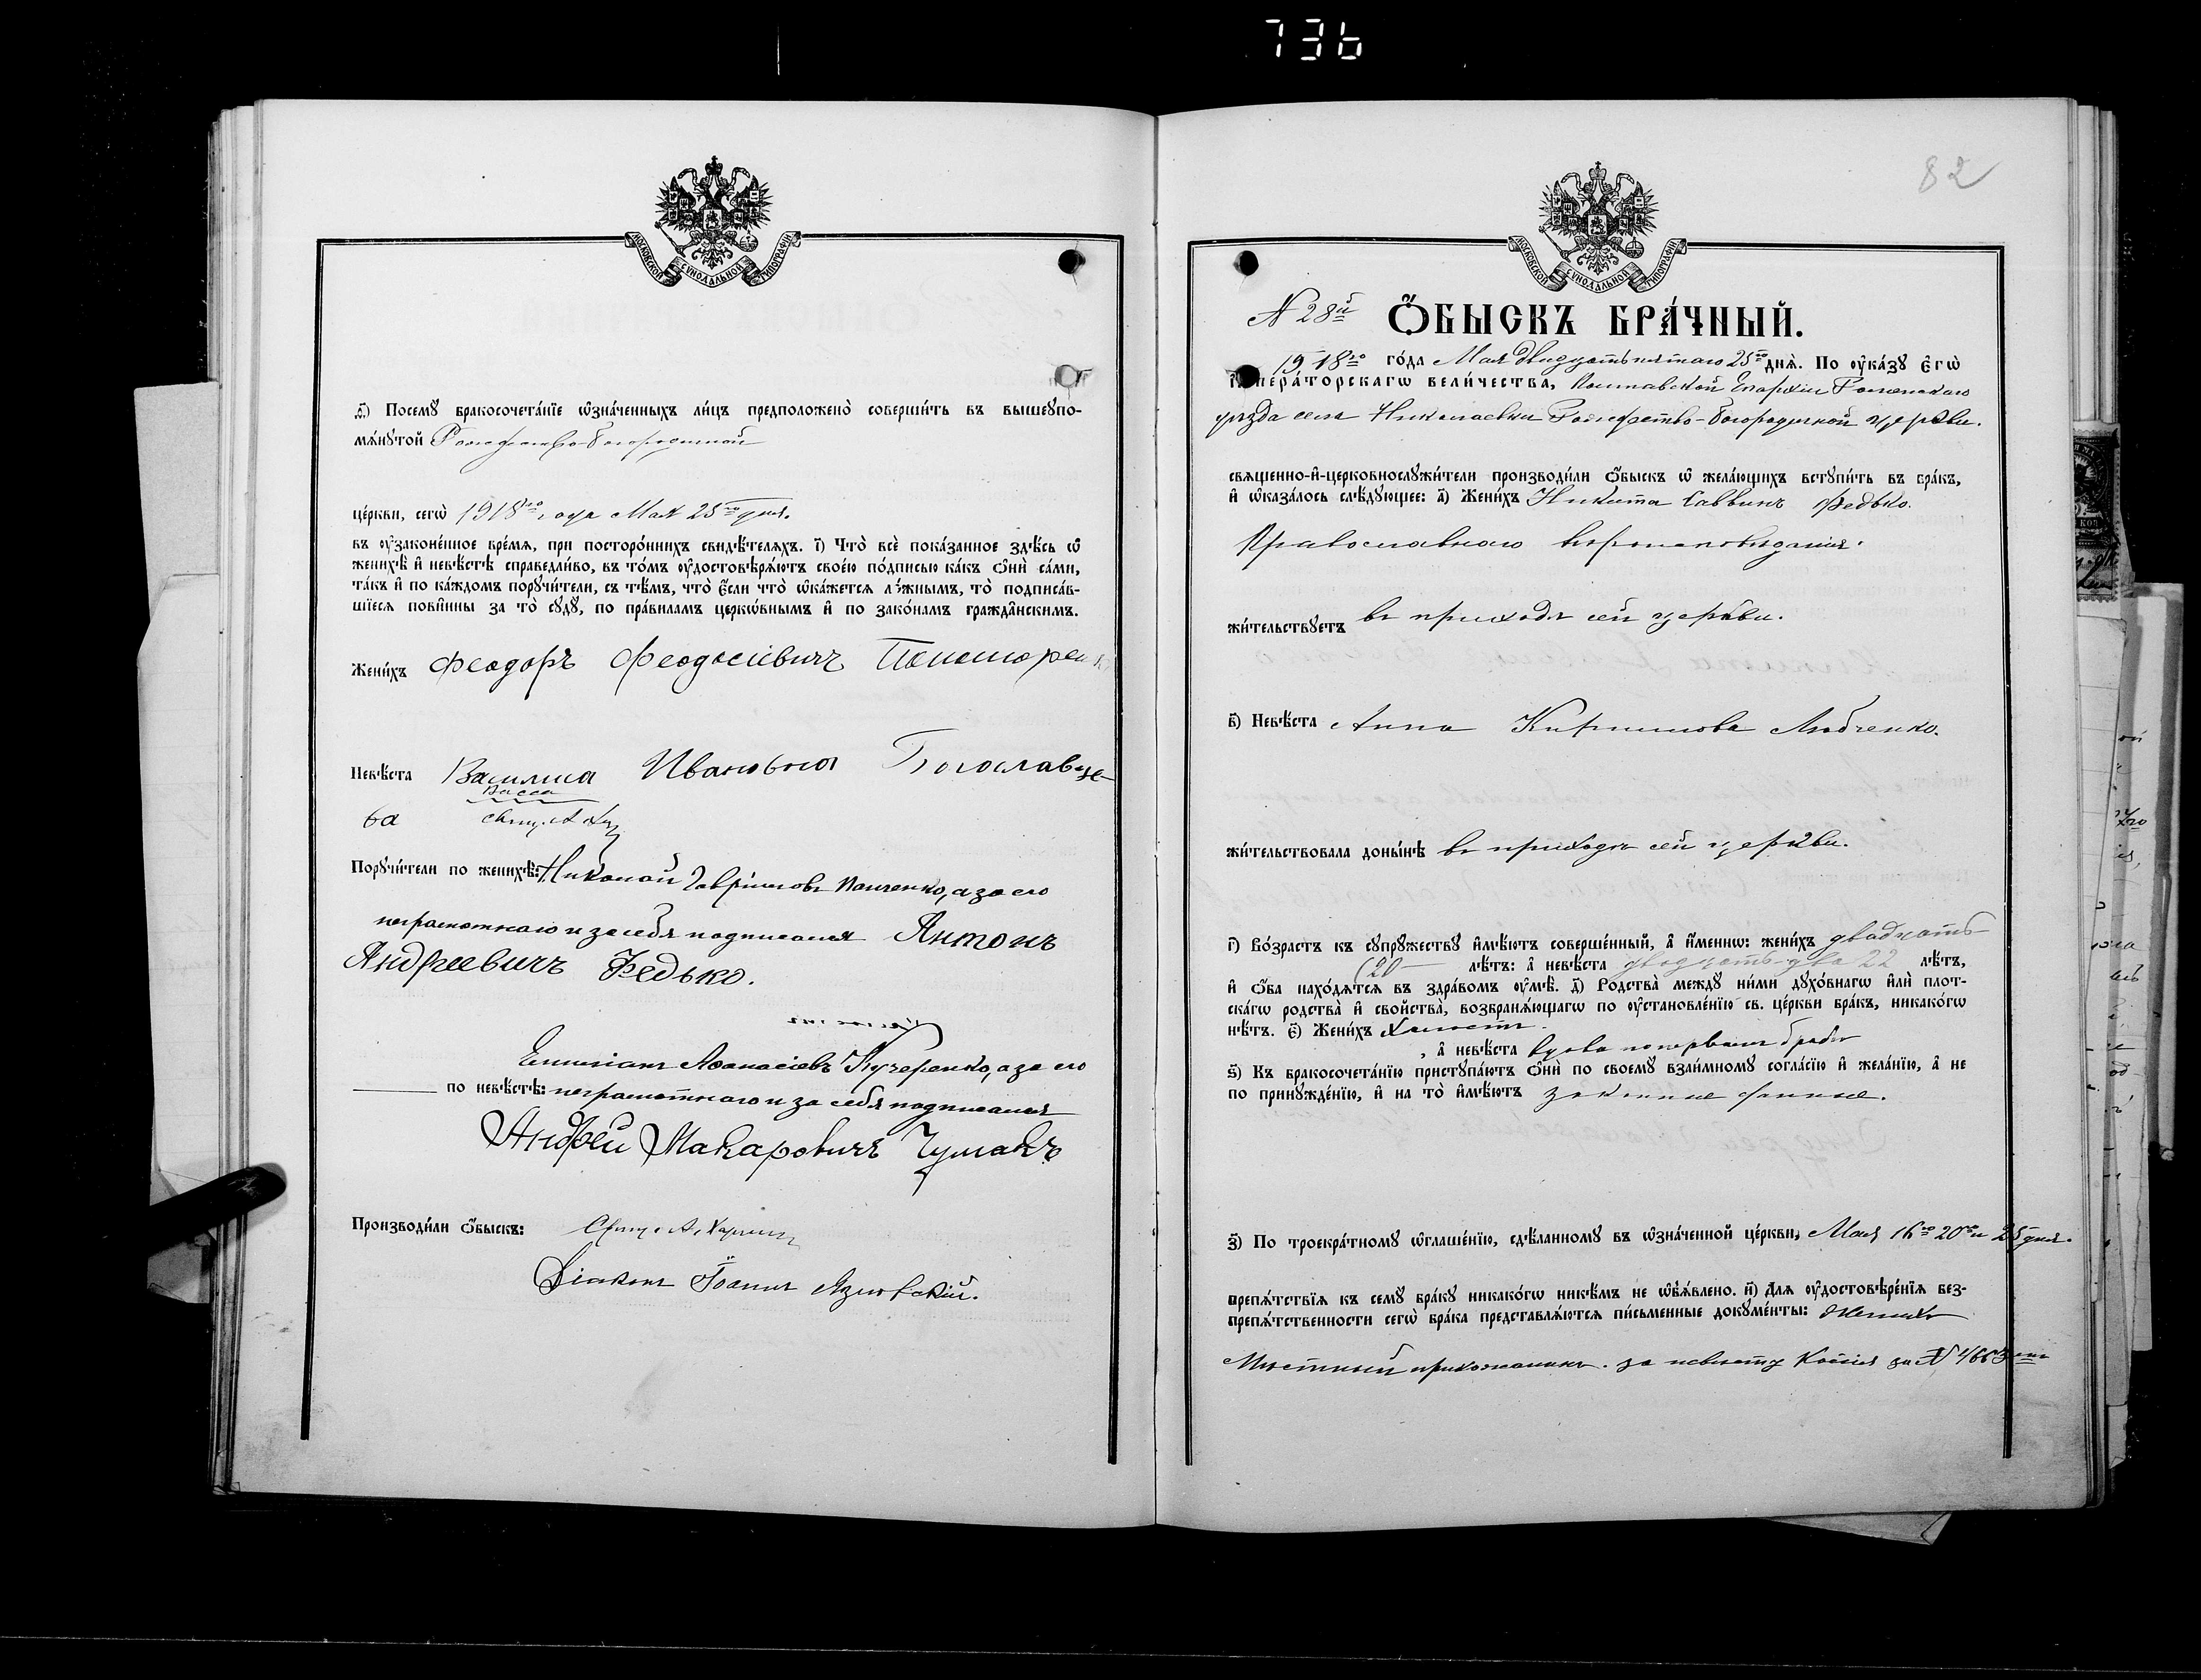 736
МОСКОВСКОЙ СѴНОДАЛЬНОЙ ТИПОГРАФІИ
ѳ҃) Посемꙋ̀ бракосочета́нїе ѡ҆зна́ченныхъ ли́цъ предположено̀ соверши́ть въ вышеꙋпо-
мѧ́нꙋтой Рождество-Богородичной
це́ркви, сегѡ̀ 1918го года Мая 25го дня.
въ ᲂу҆законе́нное вре́мѧ, при посторо́ннихъ свидѣ́телѧхъ. і҃) Что̀ всѐ пока́занное здѣ́сь ѡ҆
женихѣ̀ и҆ невѣ́стѣ справедли́во, въ то́мъ ᲂу҆достовѣрѧ́ютъ свое́ю по́дписью ка́къ ѻ҆нѝ са́ми,
та́къ и҆ по ка́ждомъ порꙋчи́тели, съ тѣ́мъ, что̀ є҆́сли что̀ ѡ҆ка́жетсѧ ло́жнымъ, то̀ подписа́в-
шїесѧ пови́нны за то̀ сꙋдꙋ̀, по пра́виламъ церкѡ́внымъ и҆ по зако́намъ гражда́нскимъ.
Жени́хъ Феодоръ Феодосіевичъ
Невѣ́ста Василиса Ивановна Богославце-
Васса
ва Свящ. А. Хар
Порꙋчи́тели по женихѣ̀: Николай Гавріиловъ Панченко, а за его
неграмотнаго и за себя подписался Антонъ
Андреевичъ Федько.
Емиліанъ Аѳанасіевъ Кучеренко, а за его
по невѣ́стѣ: неграмотнаго и за себя подписался
Андрей Макаровичъ Чумакъ
Производи́ли ѻ҆́быскъ: Свящ. А.
Діаконъ Іоаннъ
82
МОСКОВСКОЙ СѴНОДАЛЬНОЙ ТИПОГРАФІИ
N 28й Ѻ҆́БЫСКЪ БРА́ЧНЫЙ.
1918го го́да Мая двадцать пятаго 25го днѧ̀. По ᲂу҆ка́зꙋ є҆гѡ̀
И҆мпера́торскагѡ вели́чества, Полтавской Епархіи Роменскаго
уѣзда села Николаевки Рождество-Богородичной церкви.
свѧще́нно-и҆-церковнослꙋжи́тели производи́ли ѻ҆́быскъ ѡ҆ жела́ющихъ встꙋпи́ть въ бра́къ,
и҆ ѡ҆каза́лось слѣ́дꙋющее: а҃) Жени́хъ Никита Саввинъ Федько.
Православнаго вѣроисповѣданія.
жи́тельствꙋетъ въ приходѣ сей церкви.
в҃) Невѣ́ста Анна Кириллова Любченко.
жи́тельствовала доны́нѣ въ приходѣ сей церкви.
г҃) Во́зрастъ къ сꙋпрꙋ́жествꙋ и҆мѣ́ютъ соверше́нный, а҆ и҆́меннѡ: жени́хъ двадцать
(20 лѣ́тъ: а҆ невѣ́ста двадцать два 22 лѣ́тъ,
и҆ ѻ҆́ба нахо́дѧтсѧ въ здра́вомъ ᲂу҆мѣ̀. д҃) Родства̀ междꙋ̀ ни́ми дꙋхо́внагѡ и҆лѝ плот-
ска́гѡ родства̀ и҆ сво́йства, возбранѧ́ющагѡ по ᲂу҆становле́нїю св. це́ркви бра́къ, никако́гѡ
нѣ́тъ. є҃) Жени́хъ холостъ.
, а҆ невѣ́ста вдова по первымъ бракѣ
ѕ҃) Къ бракосочета́нїю пристꙋпа́ютъ ѻ҆нѝ по своемꙋ̀ взаи́мномꙋ согла́сїю и҆ жела́нїю, а҆ не
по принꙋжде́нїю, и҆ на то̀ и҆мѣ́ютъ законные данные.
з҃) По троекра́тномꙋ ѡ҆глаше́нїю, сдѣ́ланномꙋ въ ѡ҆зна́ченной це́ркви, Мая 16го 20го и 25 дня.
препѧ́тствїѧ къ семꙋ̀ бра́кꙋ никако́гѡ никѣ́мъ не ѡ҆бъѧ́влено. и҃) Длѧ ᲂу҆достовѣре́нїѧ без-
препѧ́тственности сегѡ̀ бра́ка представлѧ́ютсѧ пи́сьменные докꙋме́нты: Женихъ
мѣстный прихожанинъ. за невѣсту Копія за N